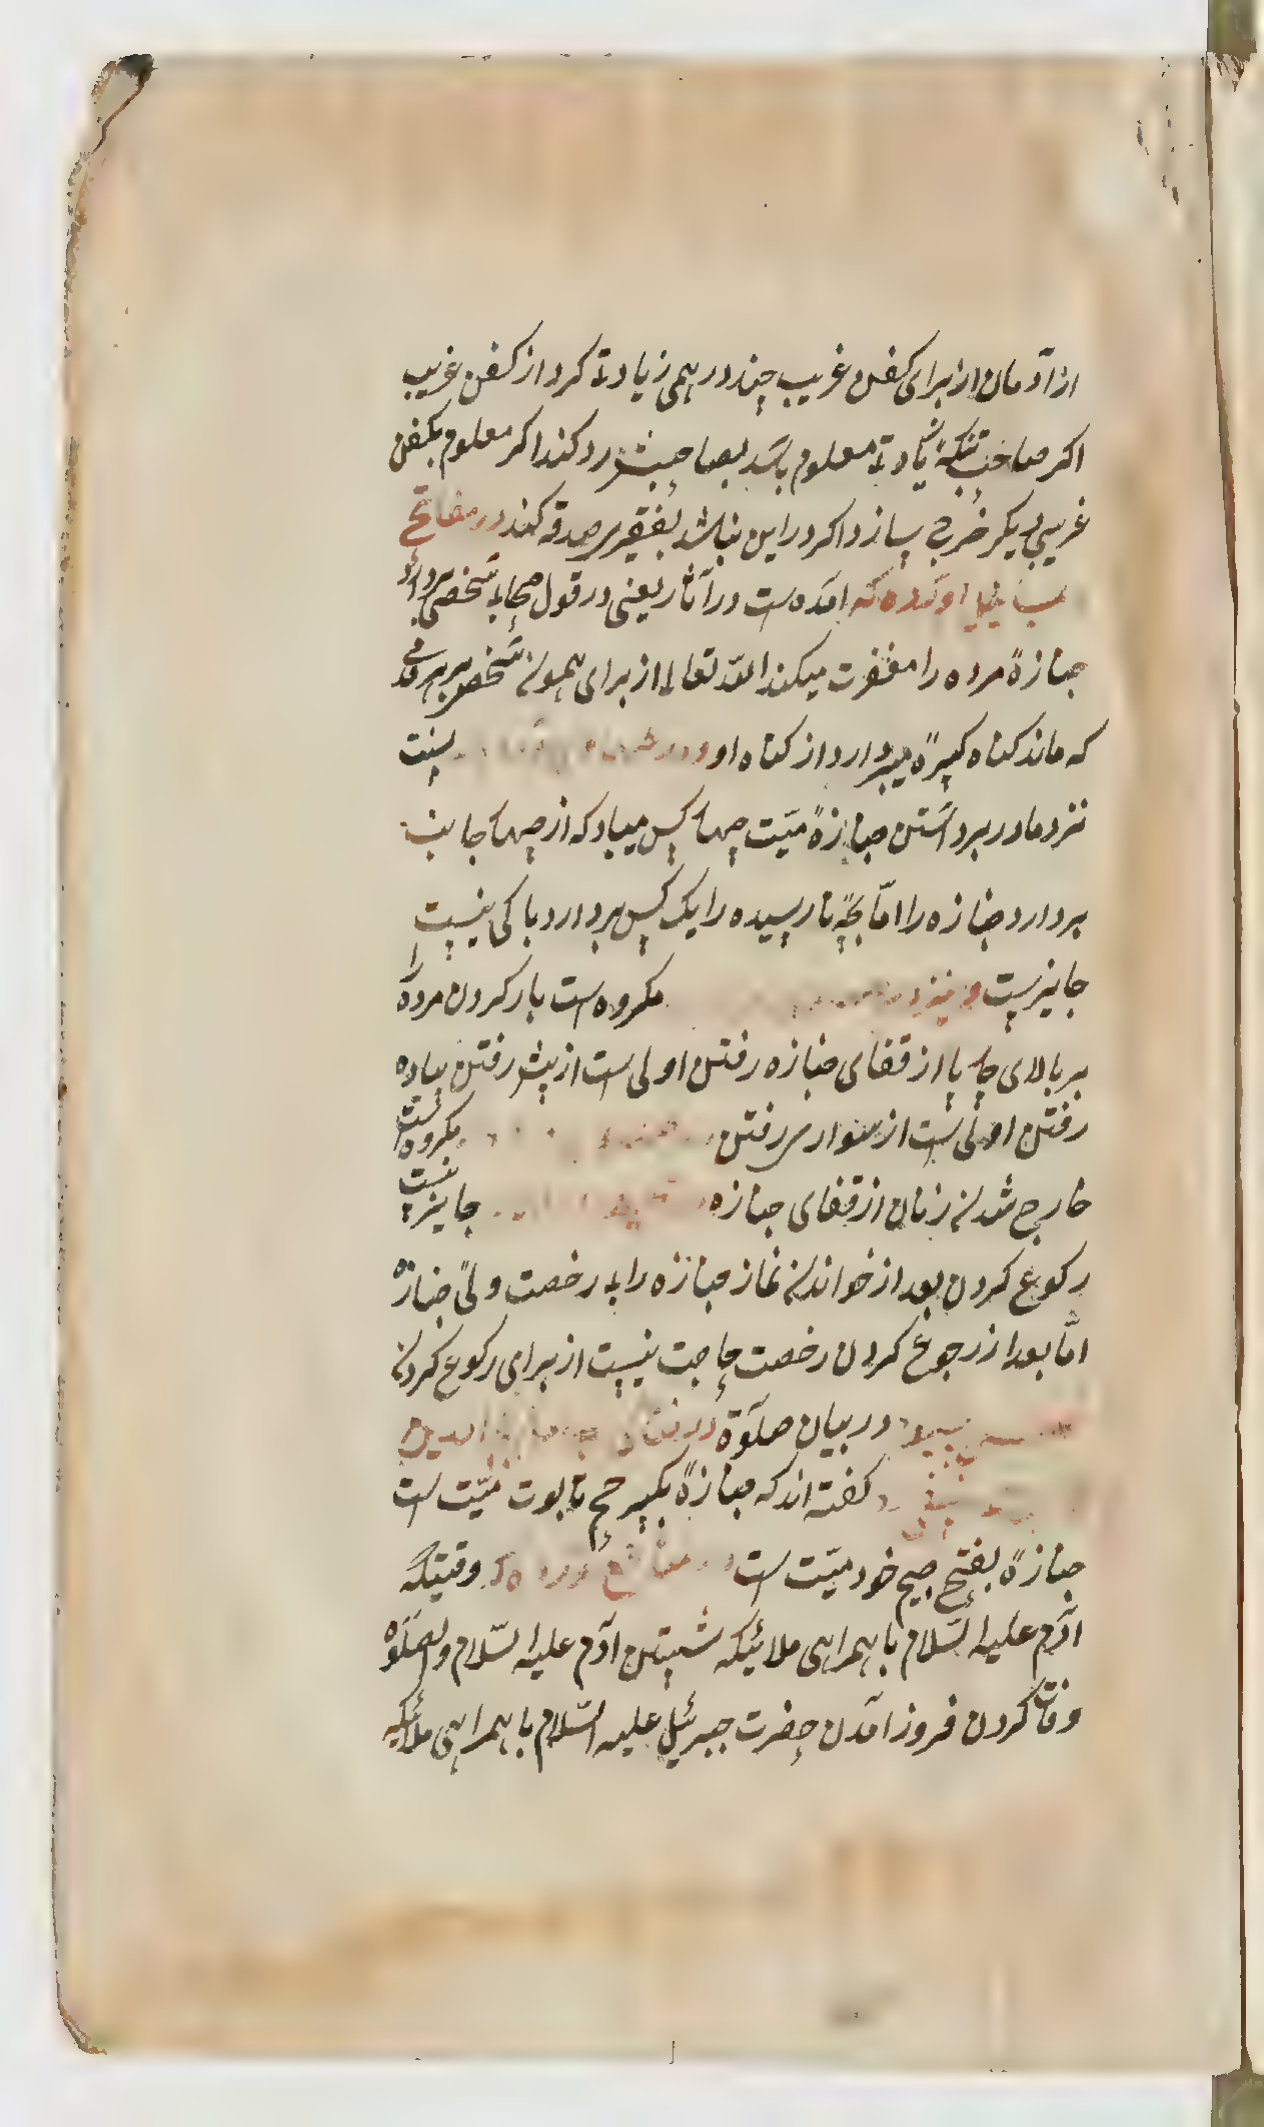 از آدمان از برای کفن غریب چند درهمی زیادة کرد از کفن غریب
اکر صاحب تنکۀ زیادة معلوم باشد بصاحبش رد کند اکر معلوم بکفن
غریبی دیکر خرج سازد اکر در این نباشد بفقیری صدقه کند در مفاتح
اورده که امده است در آثار یعنی در قول صحابه شخصی بردارد
جنازۀ مرده را مغفرت میکند الله تعالی از برای همون شخص بر هر قدمی
که ماند کناه کبیرۀ میبردارد از کناه او در سنت
نزد ما در برداشتن جنازۀ میّت چهار کس میباد که از چهار جانب
بردارد جنازه را امّا بچّۀ نارسیده را یک کس بردارد باکی نیست
جایزست و نیز در مکروه است بار کردن مرده را
بر بالای چارپا از قفای جنازه رفتن اولی است از پیش رفتن پیاده
رفتن اولی است از سواری رفتن مکروه است
خارج شدن زنان از قفای جنازه جایز نیست
رکوع کردن بعد از خواندن نماز جنازه را بی رخصت ولیّ جنازه
امّا بعد از رجوع کردن رخصت حاجت نیست از برای رکوع کردن
در بیان صلوٰة در
کفته اند که جنازۀ بکسر جیم تابوت میّت است
جنازۀ بفتح جیم خود میّت است در اورده که وقتیکه
آدم علیه السّلام با همراهی ملائیکه شستن آدم علیه السّلام والصلوٰة
وفات کردن فروز امدن حضرت جبرئیل علیه السّلام با همراهی ملائیکه